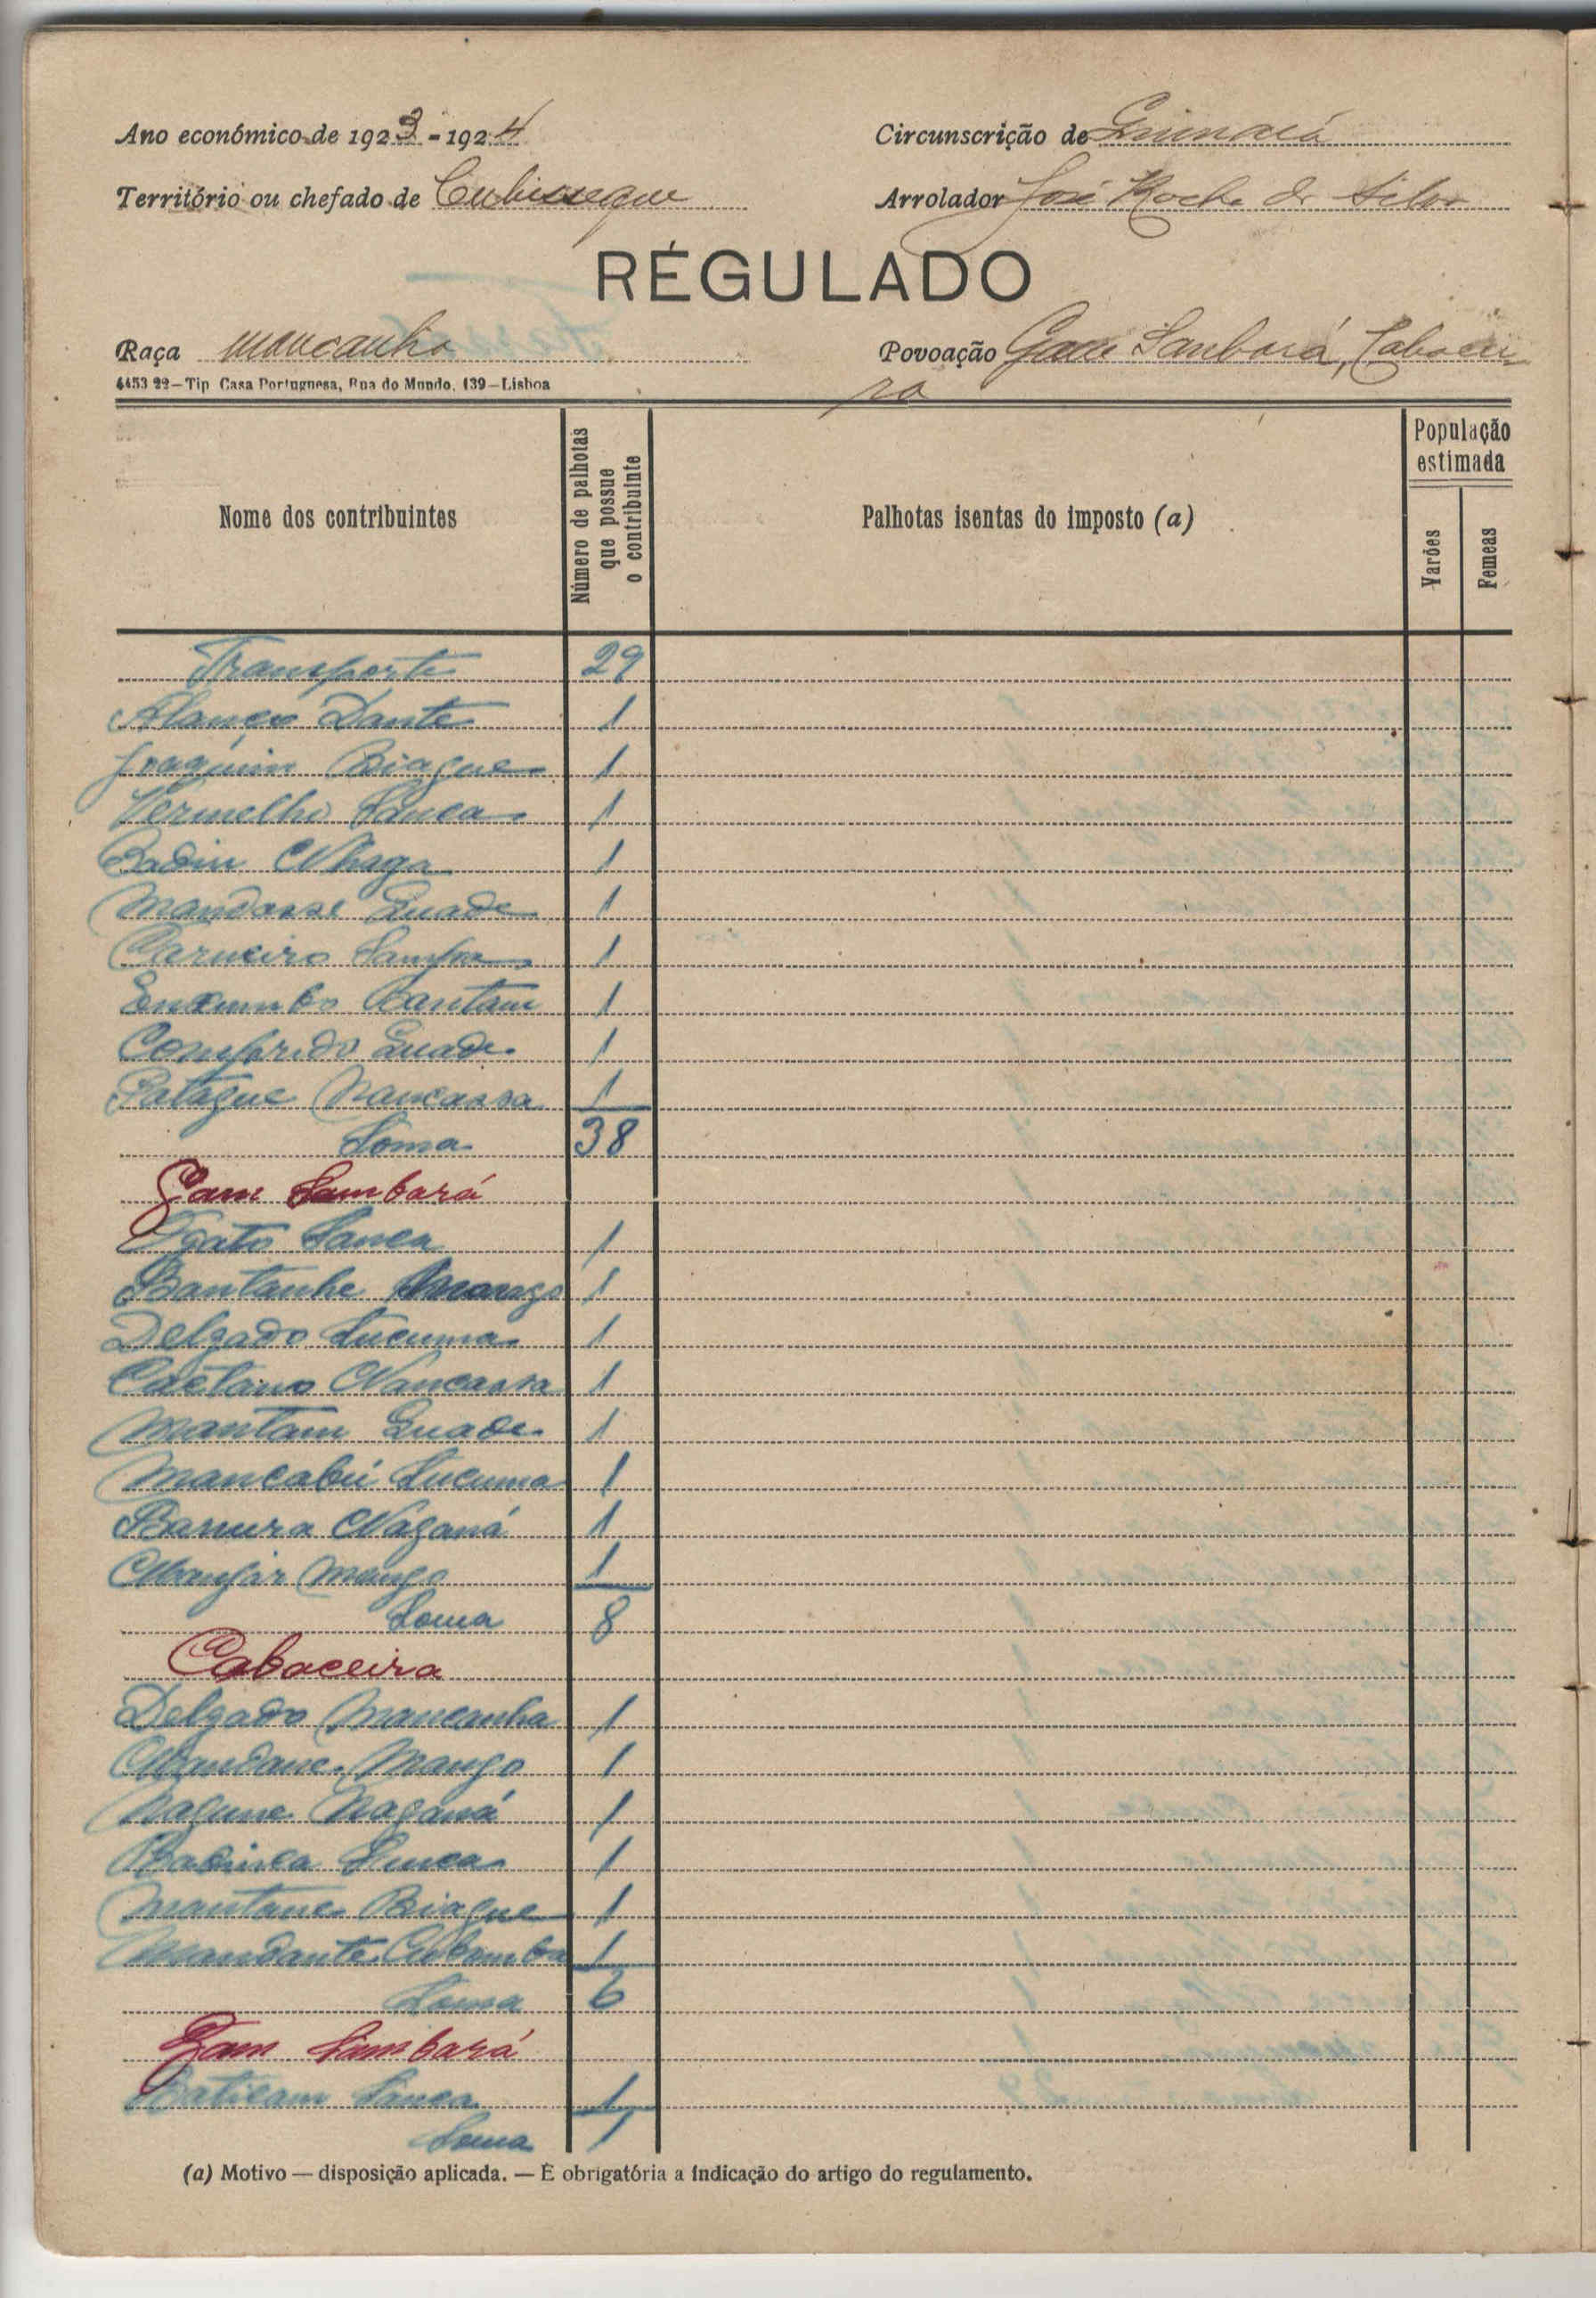 Ano económico de 1923-1924
Circunscrição de
Território ou chefado de
Arrolador José Rocha da Silva
RÉGULADO
Raça mancanha
Povoação Gam Sambará, Cabacei
ra
4453 22—Tip Casa Portuguesa, Rua do Mundo, 139—Lisboa
Nome dos contribuintes
Número de palhotas que possue o contribuinte
Palhotas isentas do imposto (a)
População estimada
Varões
Femeas
Transporte 29
Dante 1
Joaquim Biague 1
Vermelho Sanca 1
Badin Nhaga 1
Mandasse Quade 1
Carneiro Sampa 1
Bantam 1
Comprido Quade 1
Patague Nancassa 1
Soma 38
Gam Sambará
Ogato Sanca 1
Bantanhe Mango 1
Delgado Lucuma 1
Caetano Nancassa 1
Mantam Quade 1
Mancabú Lucuma 1
Banura Nàganá 1
Mango 1
Soma 8
Cabaceira
Delgado Mancanha 1
Mango 1
Nagune Naganá 1
1
Mantane Biague 1
Mandante 1
Soma 6
Gam Sambará
Baticam Sanca 1
Soma 1
(a) Motivo — disposição aplicada. — É obrigatória a indicação do artigo do regulamento.